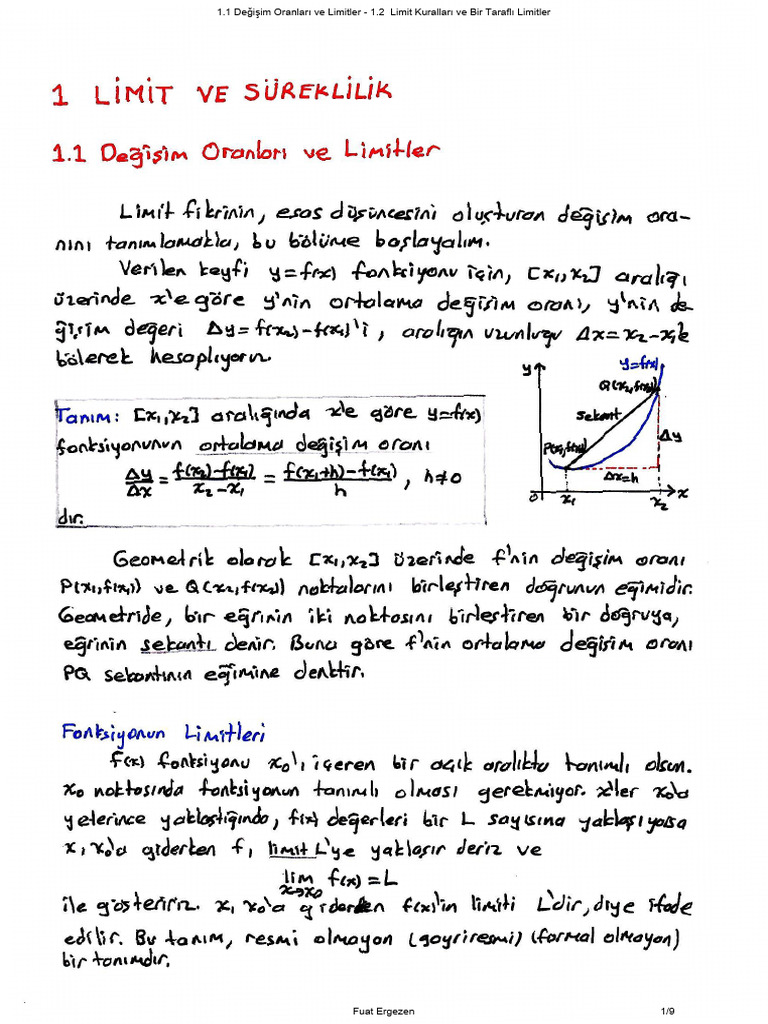 1.1 Değişim Oranları ve Limitler - 1.2 Limit Kuralları ve Bir Taraflı Limitler
1 LİMİT VE SÜREKLİLİK
1.1 Değişim Oranları ve Limitler
Limit fikrinin, esas düşüncesini oluşturan değişim ora-
nını tanımlamakla, bu bölüme başlayalım.
Verilen keyfi y=f(x) fonksiyonu için, [x₁,x₂] aralığı
üzerinde x'e göre y'nin ortalama değişim oranı, y'nin de-
ğişim değeri Δy=f(x₂)-f(x₁)'i, aralığın uzunluğu Δx=x₂-x₁'e
bölerek hesaplıyoruz.
Tanım: [x₁,x₂] aralığında x'e göre y=f(x)
fonksiyonunun ortalama değişim oranı
Δy/Δx = (f(x₂)-f(x₁))/(x₂-x₁) = (f(x₁+h)-f(x₁))/h, h≠0
dır.
y
y=f(x)
Q(x₂,f(x₂))
sekant
P(x₁,f(x₁))
Δy
Δx=h
0 x₁ x₂ x
Geometrik olarak [x₁,x₂] üzerinde f'nin değişim oranı
P(x₁,f(x₁)) ve Q(x₂,f(x₂)) noktalarını birleştiren doğrunun eğimidir.
Geometride, bir eğrinin iki noktasını birleştiren bir doğruya,
eğrinin sekantı denir. Buna göre f'nin ortalama değişim oranı
PQ sekantının eğimine denktir.
Fonksiyonun Limitleri
f(x) fonksiyonu x₀'ı içeren bir açık aralıkta tanımlı olsun.
x₀ noktasında fonksiyonun tanımlı olması gerekmiyor. x'ler x₀'a
yeterince yaklaştığında, f(x) değerleri bir L sayısına yaklaşıyorsa
x, x₀'a giderken f, limit L'ye yaklaşır deriz ve
lim f(x)=L
x→x₀
ile gösteririz. x, x₀'a giderken f(x)'in limiti L'dir, diye ifade
edilir. Bu tanım, resmi olmayan (gayriresmi) (formal olmayan)
bir tanımdır.
Fuat Ergezen
1/9